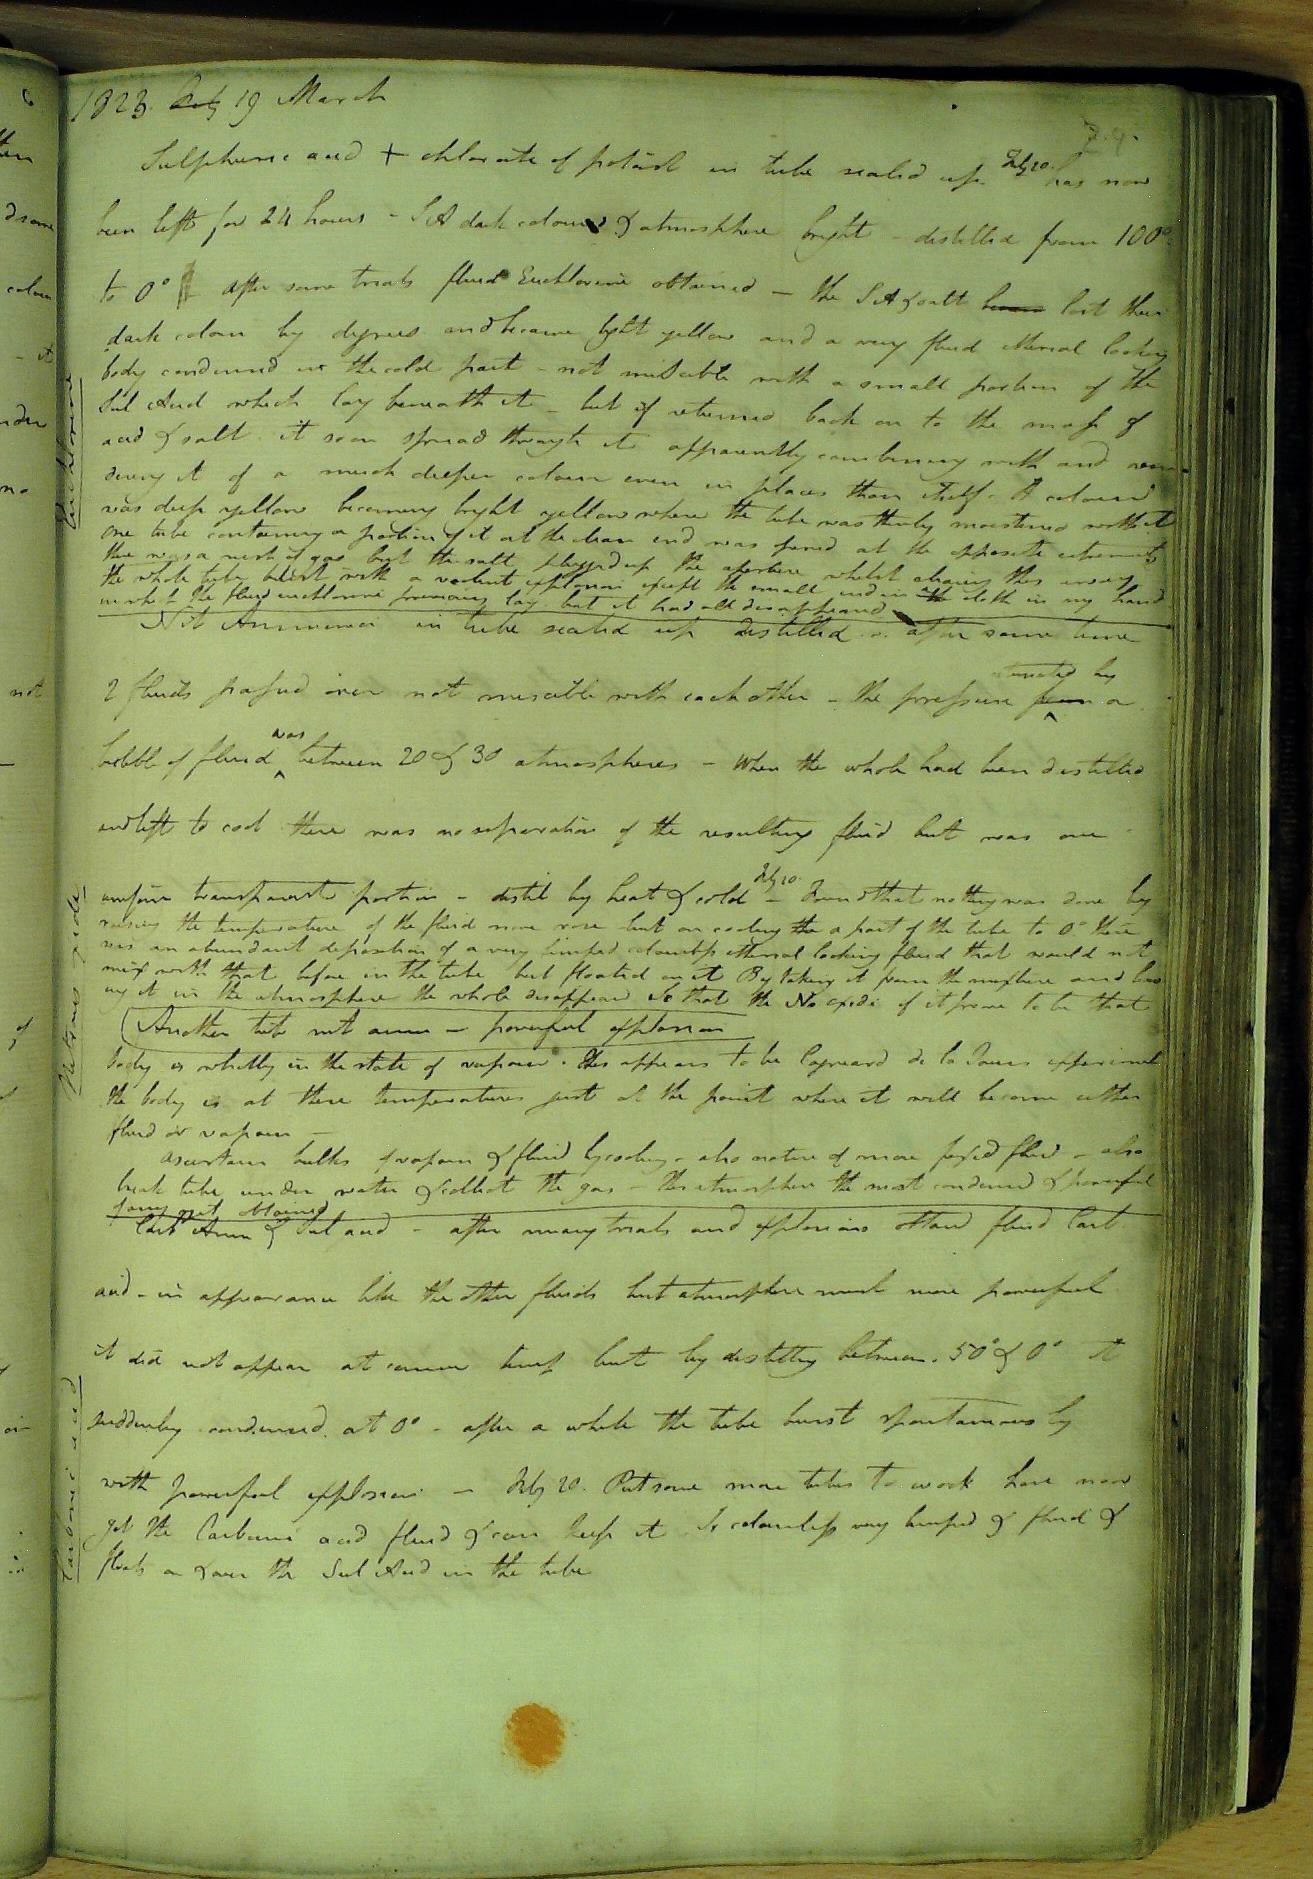 1823. Feby 19 March
Sulphuric acid + chlorate of potash in tube sealed up Feby 20. has now
been left for 24 hours - S A dark coloured & atmosphere bright - distilled from 100°
to 0° After some trials fluid Euchlorine obtained - the S A & salt have lost their
dark colour by degrees and became light yellow and a very fluid etherial looking
body condensed in the cold part - not miscible with a small portion of the
Sul Acid which lay beneath it - but if returned back on to the mass of
acid & salt it soon spread through it apparently combining with and ren
dering it of a much deeper colour even in places than itself. It colour
was deep yellow becoming bright yellow where the tube was thinly moistened with it
one tube containing a portion of it at the clean end was opened at the opposite extremity
there was a rush of gas but the salt plugged up the aperture whilst clearing this away
the whole tube burst with a violent explosion except the small end in the cloth in my hand
in which the fluid euchlorine previously lay but it had all disappeared
Nit Ammonia in tube sealed up distilled after some time
2 fluids passed over not miscible with each other - the pressure from estimated by a
bubble of fluid was between 20 & 30 atmospheres - When the whole had been distilled
and left to cool there was no separation of the resulting fluid but was one
uniform transparent portion - distil by heat & cold - Feby 20. Found that nothing was done by
raising the temperature of the fluid more but on cooling the a part of the tube to 0° there
was an abundant deposition of a very limpid colourless etherial looking fluid that would not
mix with that before in the tube but floated on it By taking it from the mixture and
ing it in the atmosphere the whole disappear So that the No oxide if it prove to be that
Another tube nit amm - powerful explosion
body is wholly in the state of vapour. This appears to be Cagniard de la Tours experiment
the body is at these temperatures just at the point where it will become either
fluid or vapour -
Ascertain bulks of vapour & fluid by cooling - also nature of more fixed fluid - also
break tube under water & collect the gas - this atmosphere the most condensed & powerful
of any yet obtained
Carb Amm & Sul acid - after many trials and explosions obtained fluid Carb
acid - in appearance like the other fluids but atmosphere much more powerful
it did not appear at common temp but by distilling between 50° & 0° it
suddenly condensed at 0° - after a while the tube burst spontaneously
with powerful explosion - Feby 20. Put some more tubes to work have now
got the Carbonic acid fluid & can keep it Is colourless very limpid & fluid &
floats on & over the Sul Acid in the tube
Euchlorine
Nitrous oxide
Carbonic acid